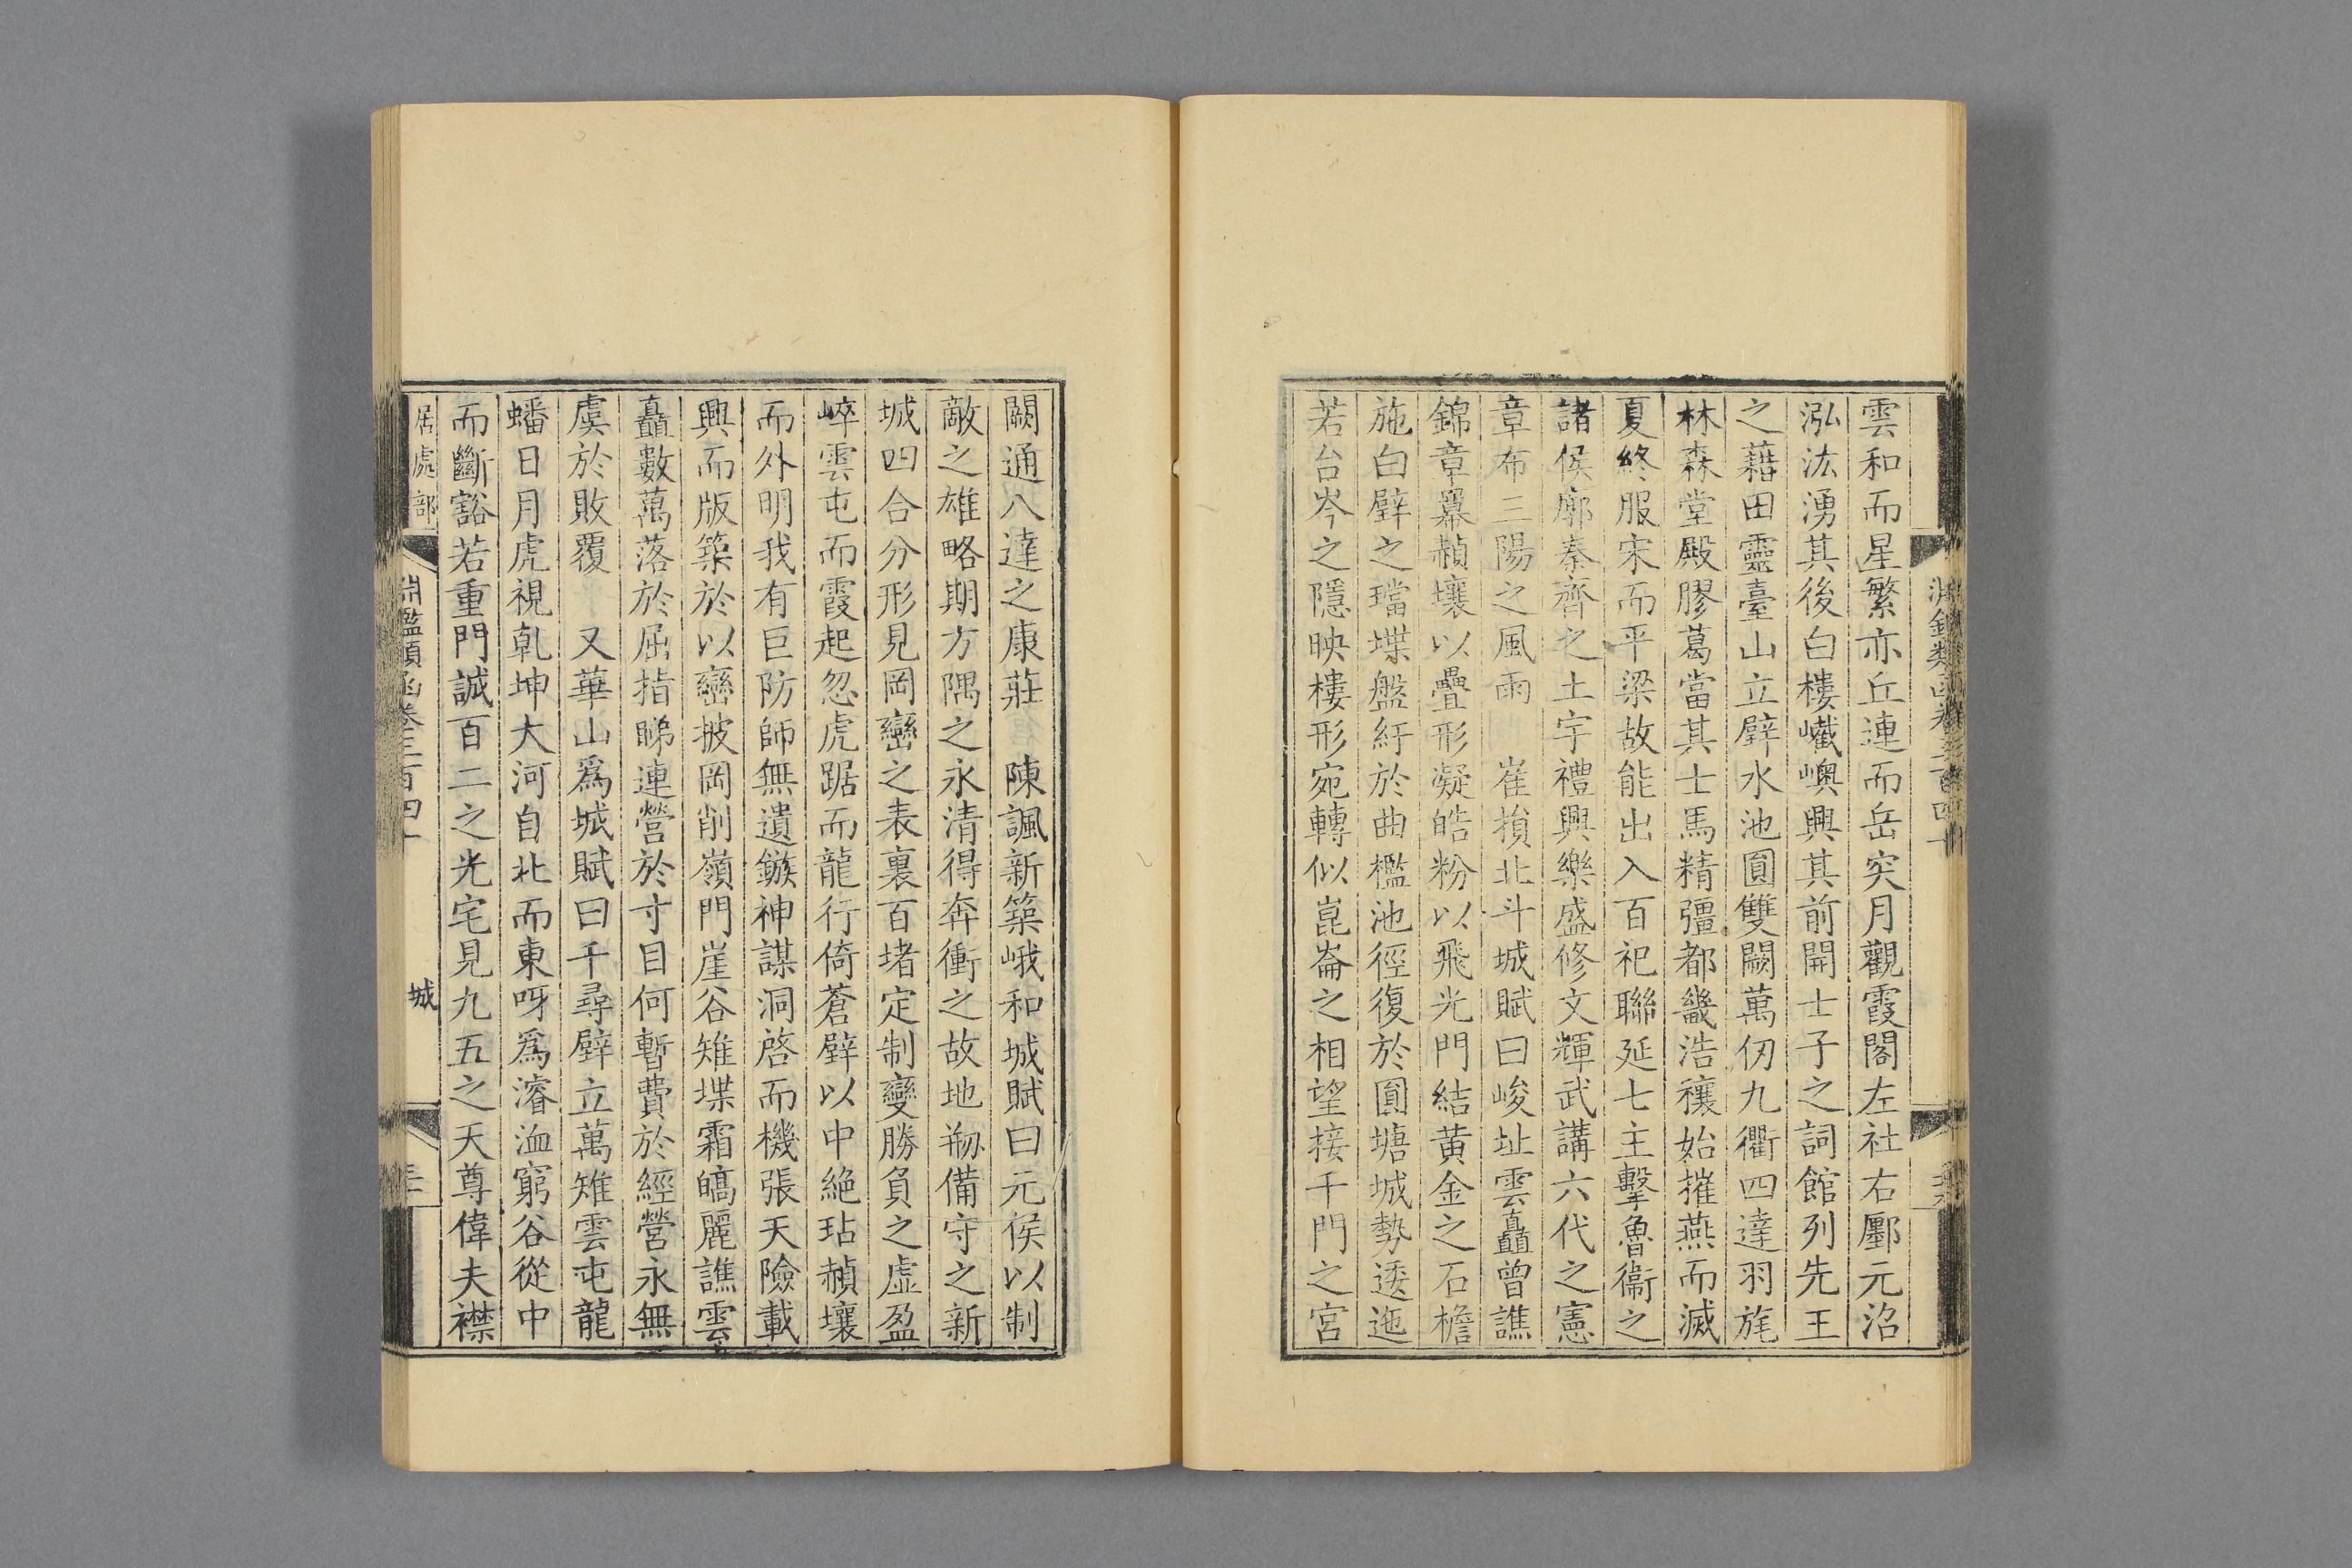 雲和而星繁亦丘連而岳突月觀霞閣左社右鄽元沼
泓汯湧其後白樓巀嶼興其前開士子之詞館列先王
之藉田靈臺山立壁水池圓雙闕萬仞九衢四達羽旄
林森堂殿膠葛當其士馬精彊都畿浩穰始摧燕而滅
夏終服宋而平梁故能出入百祀聯延七主擊魯衛之
諸侯廓秦齊之土宇禮興樂盛修文輝武講六代之憲
章布三陽之風雨　崔損北斗城賦曰峻址雲矗曾譙
錦章羃赬壤以疊形凝皓粉以飛光門結黄金之石檐
施白壁之璫堞盤紆於曲檻池徑復於圓塘城勢逶迤
若台岑之隱映樓形宛轉似崑崙之相望接千門之宮
闕通八達之康莊　陳諷新築峨和城賦曰元侯以制
敵之雄略期方隅之永清得奔衝之故地剏備守之新
城四合分形見岡巒之表裏百堵定制變勝負之虛盈
崪雲屯而霞起忽虎踞而龍行倚蒼壁以中絶玷赬壤
而外明我有巨防師無遺鏃神謀洞啓而機張天險載
興而版築於以巒披岡削嶺門崖谷雉堞霜皜麗譙雲
矗數萬落於屈指睇連營於寸目何暫費於經營永無
虞於敗覆　又華山爲城賦曰千尋壁立萬雉雲屯龍
蟠日月虎視乾坤大河自北而東呀爲濬洫窮谷從中
而斷豁若重門誠百二之光宅見九五之天尊偉夫襟
居處部
淵鑑類函卷三百四十
城